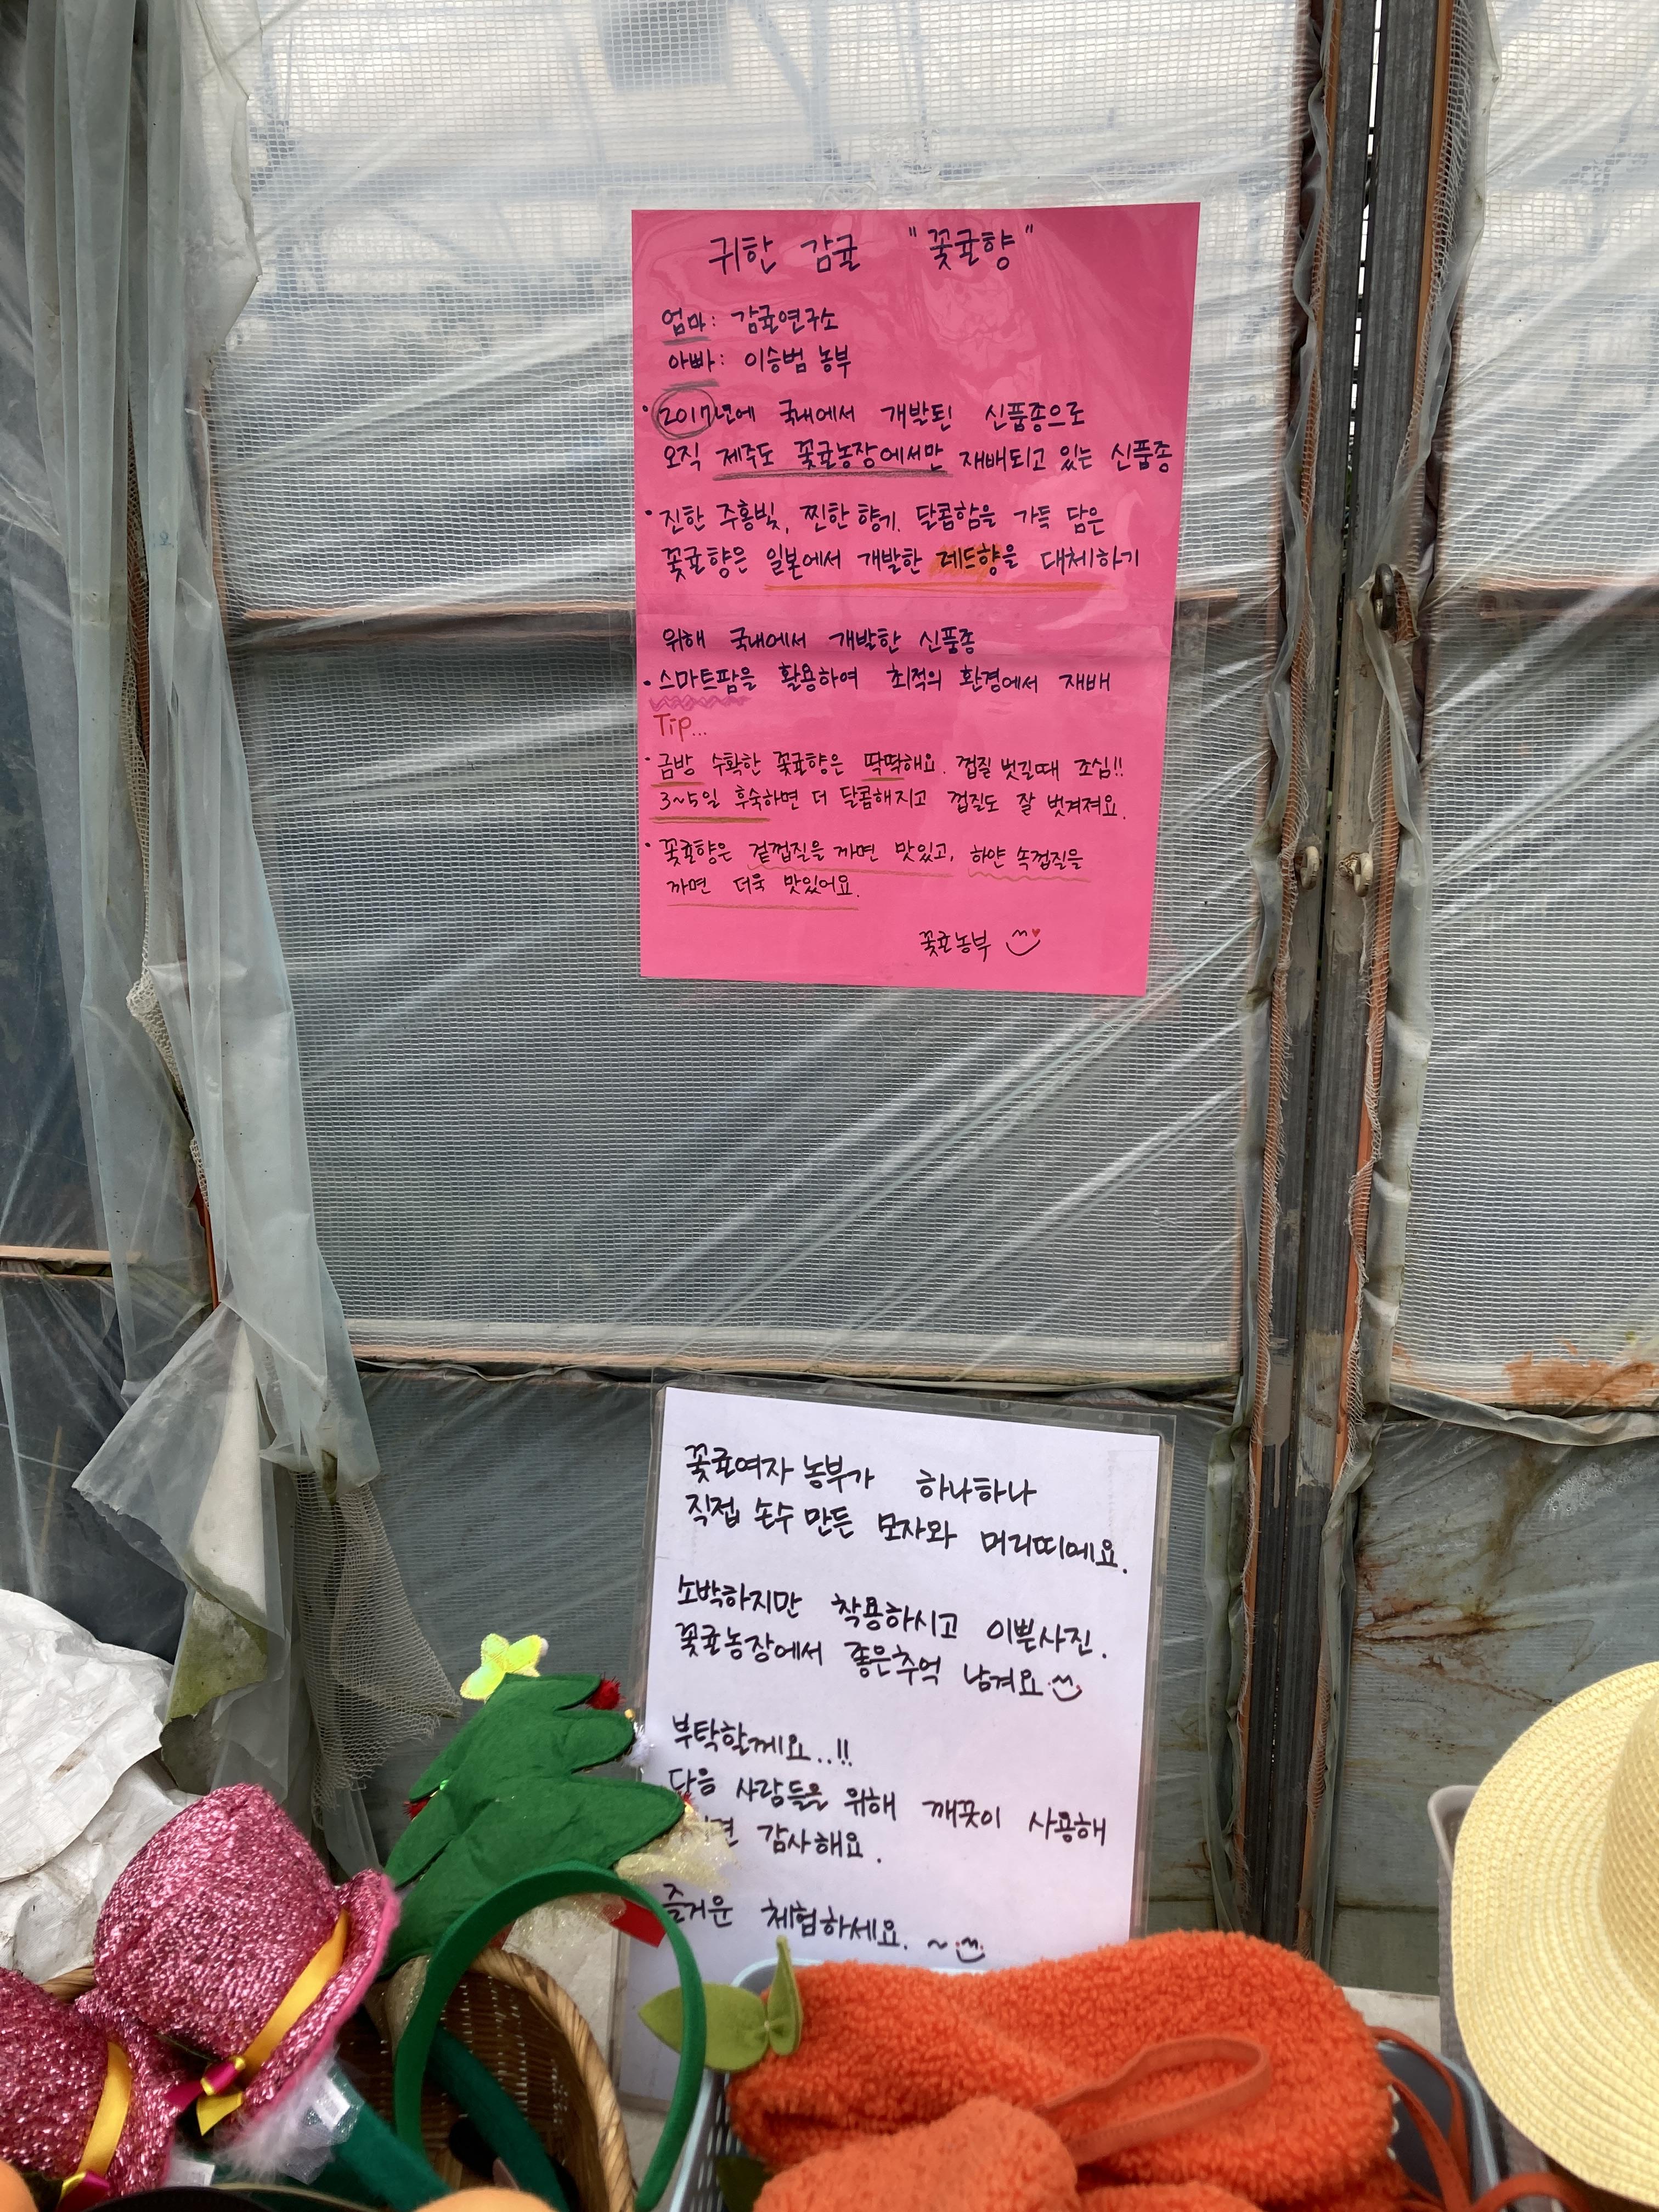 귀한 감귤 "꽃귤향"
엄마: 감귤연구소
아빠: 이승범 농부
• 2017년에 국내에서 개발된 신품종으로
오직 제주도 꽃귤농장에서만 재배되고 있는 신품종
• 진한 주홍빛, 찐한 향기, 달콤함을 가득 담은
꽃귤향은 일본에서 개발한 레드향을 대체하기
위해 국내에서 개발한 신품종
• 스마트팜을 활용하여 최적의 환경에서 재배
Tip...
• 금방 수확한 꽃귤향은 딱딱해요. 껍질 벗길때 조심!!
3~5일 후숙하면 더 달콤해지고 껍질도 잘 벗겨져요.
• 꽃귤향은 겉껍질을 까면 맛있고, 하얀 속껍질을
까면 더욱 맛있어요.
꽃귤농부
꽃귤여자 농부가 하나하나
직접 손수 만든 모자와 머리띠에요.
소박하지만 착용하시고 이쁜사진.
꽃귤농장에서 좋은추억 남겨요
부탁할께요..!!
다음 사람들을 위해 깨끗이 사용해
감사해요.
즐거운 체험하세요. ~